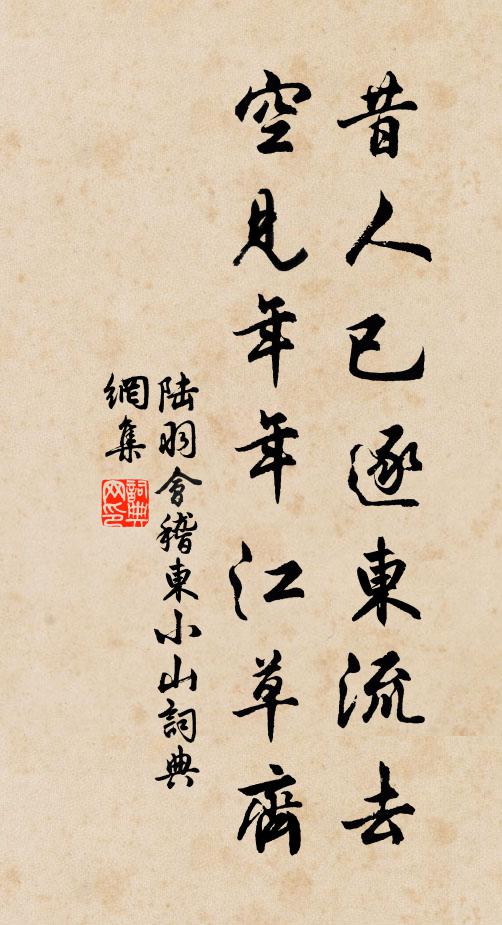 昔人已逐東流去
空見年年江草齊
陸羽會稽東小山詞典
網集
詞典網印